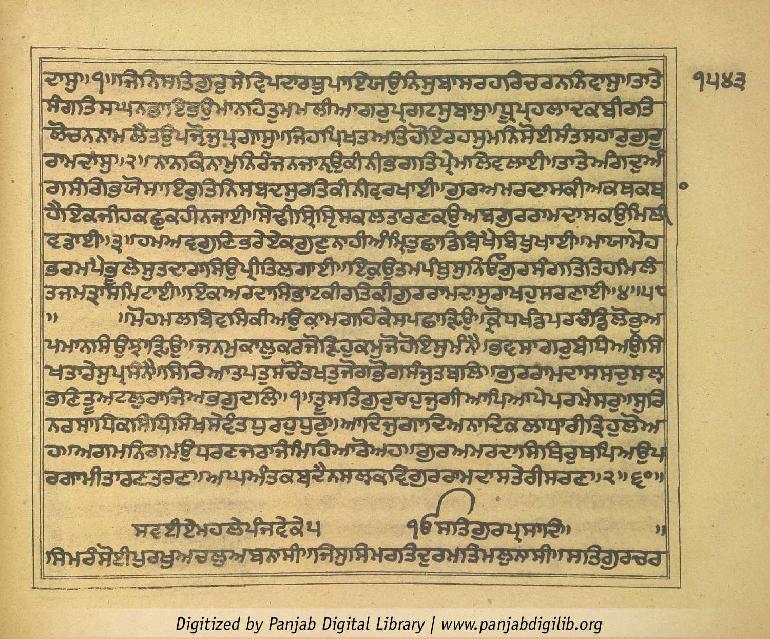 ਦਾਸੁ॥੧॥ਜਿਨਿਸਤਿਗੁਰੁਸੇਵਿਪਦਾਰਥੁਪਾਇਯਉਨਿਸੁਬਾਸਰਹਰਿਚਰਨਨਿਵਾਸੁ॥ਤਾਤੇ ੧੫੪੩
ਸੰਗਤਿਸਘਨਭਾਇਭਉਮਾਨਹਿਤੁਮਮਲੀਆਗਰਪ੍ਰਗਟਸੁਬਾਸੁ॥ਧ੍ਰੂਪ੍ਰਹਲਾਦਕਬੀਰਤਿ
ਲੋਚਨਨਾਮਲੈਤਉਪਜੵੋਜੁਪ੍ਰਗਾਸੁ॥ਜਿਹਪਿਖਤਅਤਿਹੋਇਰਹਸੁਮਨਿਸੋਈਸੰਤਸਹਾਰੁਗੁਰੂ
ਰਾਮਦਾਸੁ॥੨॥ਨਾਨਕਿਨਾਮੁਨਿਰੰਜਨਜਾਨੵਉਕੀਨੀਭਗਤਿਪ੍ਰੇਮਲਿਵਲਾਈ॥ਤਾਤੇਅੰਗਦੁਅੰ
ਗਸੰਗਿਭਯੋਸਾਇਰੁਤਿਨਿਸਬਦਸੁਰਤਿਕੀਨੀਵਰਖਾਈ॥ਗੁਰਅਮਰਦਾਸਕੀਅਕਥਕਥਾ
ਹੈਇਕਜੀਹਕਛੁਕਹੀਨਜਾਈ॥ਸੋਢੀਸ੍ਰਿਸ੍ਟਿਸਕਲਤਾਰਣਕਉਅਬਗੁਰਰਾਮਦਾਸਕਉਮਿਲੀ
ਵਡਾਈ॥੩॥ਹਮਅਵਗੁਣਿਭਰੇਏਕੁਗੁਣੁਨਾਹੀਅੰਮ੍ਰਿਤੁਛਾਡਿਬਿਖੈਬਿਖੁਖਾਈ॥ਮਾਯਾਮੋਹ
ਭਰਮਪੈਭੂਲੇਸੁਤਦਾਰਾਸਿਉਪ੍ਰੀਤਿਲਗਾਈ॥ਇਕੁਉਤਮਪੰਥੁਸੁਨਿਓਗੁਰਸੰਗਤਿਤਿਹਮਿਲੰ
ਤਜਮਤ੍ਰਾਸਮਿਟਾਈ॥ਇਕਅਰਦਾਸਿਭਾਟਕੀਰਤਿਕੀਗੁਰਰਾਮਦਾਸੁਰਾਖਹੁਸਰਣਾਈ॥੪॥੫੮
॥ ॥ਮੋਹਮਲਿਬਿਵਸਿਕੀਅਉਕਾਮਗਹਿਕੇਸਪਛਾੜਿਉ॥ਕ੍ਰੋਧਖੰਡਿਪਰਚੰਡਿਲੋਭੁਅ
ਪਮਾਨਸਿਉਝਾੜਿਉ॥ਜਨਮੁਕਾਲੁਕਰਜੋੜਿਹੁਕਮੁਜੋਹੋਇਸੁਮੰਨੈ॥ਭਵਸਾਗਰੁਬੰਧਿਅਉਸਿ
ਖਤਾਰੇਸੁਪ੍ਰਸੰਨੈ॥ਸਿਰਿਆਤਪਤੁਸਚੌਤਖਤੁਜੋਗਭੋਗਸੰਜੁਤਬਲਿ॥ਗੁਰਰਾਮਦਾਸਸਚੁਸਲੵ
ਭਣਿਤੂਅਟਲੁਰਾਜਿਅਭਗੁਦਲਿ॥੧॥ਤੂਸਤਿਗੁਰੁਚਹੁਜੁਗੀਆਪਿਆਪੇਪਰਮੇਸਰੁ॥ਸੁਰਿ
ਨਰਸਾਧਿਕਸਿਧਸਿਖਸੇਵੰਤਧੁਰਹੁਧੁਰੁ॥ਆਦਿਜੁਗਾਦਿਅਨਾਦਿਕਲਾਧਾਰੀਤ੍ਰਿਹੁਲੋਅ
ਹ॥ਅਗਮਨਿਗਮਉਧਰਣਜਰਾਜੰਮਿਹਿਆਰੋਅਹ॥ਗੁਰਅਮਰਦਾਸਿਥਿਰੁਥਪਿਅਉਪ
ਰਗਾਮੀਤਾਰਣਤਰਣ॥ਅਘਅੰਤਕਬਦੈਨਸਲੵਕਵਿਗੁਰਰਾਮਦਾਸਤੇਰੀਸਰਣ॥੨॥੬੦॥
ਸਵਈਏਮਹਲੇਪੰਜਵੇਕੇ੫ ੴਸਤਿਗੁਰਪ੍ਰਸਾਦਿ॥ ॥
ਸਿਮਰੰਸੋਈਪੁਰਖੁਅਚਲੁਅਬਿਨਾਸੀ॥ਜਿਸੁਸਿਮਰਤਦੁਰਮਤਿਮਲੁਨਾਸੀ॥ਸਤਿਗੁਰਚਰ
Digitized by Panjab Digital Library | www.panjabdigilib.org